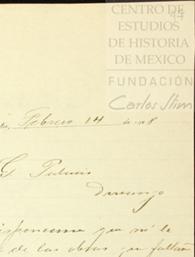 CENTRO DE
ESTUDIOS
DE HISTORIA
DE MEXICO
FUNDACIÓN
Carlos Slim
Febrero 14
G Palacio
Durango
que no le
de las obras que faltan